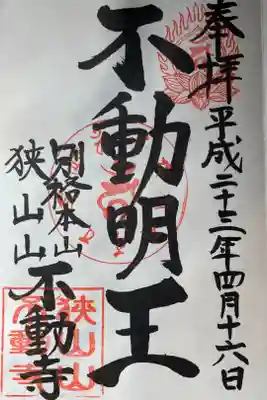 奉拝 平成二十三年四月十六日
不動明王
別格本山
狭山山 不動寺
狭山山
不動寺